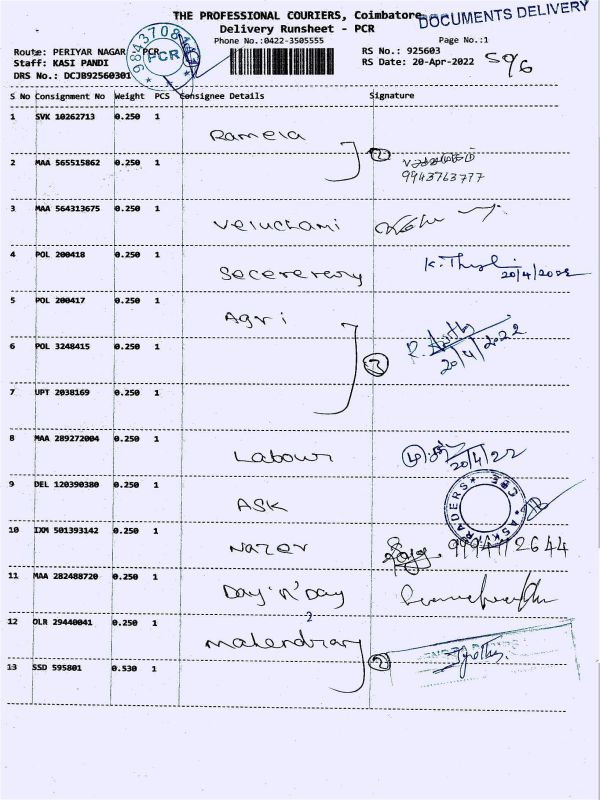 THE PROFESSIONAL COURIERS, Coimbatore
DOCUMENTS DELIVERY
Delivery Runsheet - PCR
Phone No.:0422-3505555
Page No.:1
Route: PERIYAR NAGAR PCR
RS No.: 925603
Staff: KASI PANDI
RS Date: 20-Apr-2022
DRS No.: DCJB92560301
PCR
S No Consignment No Weight PCS Consignee Details Signature
1 SVK 10262713 0.250 1
Ramela
2 MAA 565515862 0.250 1
2
9943763777
3 MAA 564313675 0.250 1
Veluchami
4 POL 200418 0.250 1
Secererery
20/4/2022
5 POL 200417 0.250 1
Agri
6 POL 3248415 0.250 1
20/4/2022
7 UPT 2038169 0.250 1
8 MAA 289272004 0.250 1
Labour
20/4/22
9 DEL 120390380 0.250 1
ASK
ASK TRADERS
10 IXM 501393142 0.250 1
Nazer
11 MAA 282488720 0.250 1
Day 'n' Day
12 OLR 29440041 0.250 1
2
Mahendiran
2
13 SSD 595801 0.530 1